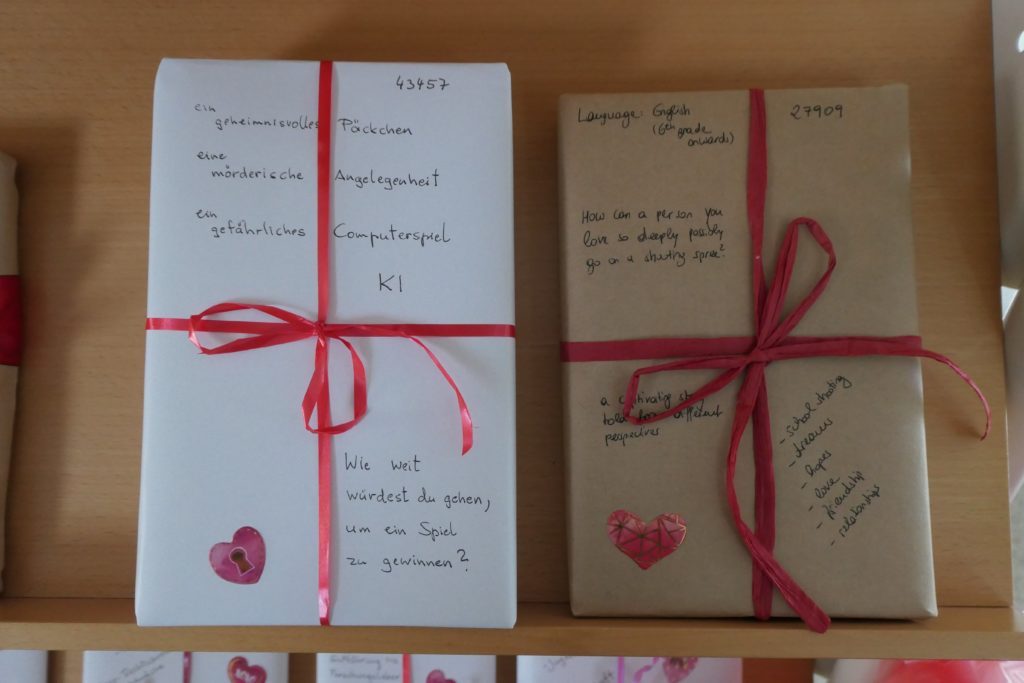 43457
ein
geheimnisvolles Päckchen
eine
mörderische Angelegenheit
ein
gefährliches Computerspiel
KI
Wie weit
würdest du gehen,
um ein Spiel
zu gewinnen?
Language: English
(6th grade
onwards)
27909
How can a person you
love so deeply possibly
go on a shooting spree?
a captivating story
told from different
perspectives
- school shooting
- dreams
- hopes
- love
- friendship
- relationships